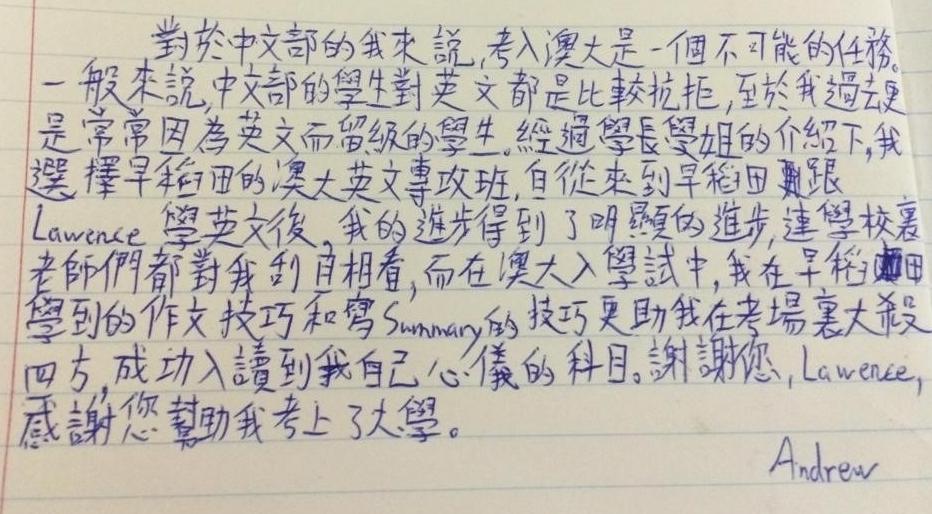 對於中文部的我來說,考入澳大是一個不可能的任務。
一般來說,中文部的學生對英文都是比較抗拒,至於我過去更
是常常因為英文而留級的學生。經過學長學姐的介紹下,我
選擇早稻田的澳大英文專攻班,自從來到早稻田跟
Lawrence 學英文後,我的進步得到了明顯的進步,連學校裏
老師們都對我刮目相看,而在澳大入學試中,我在早稻田
學到的作文技巧和寫Summary的技巧更助我在考場裏大殺
四方,成功入讀到我自己心儀的科目。謝謝您,Lawrence,
感謝您幫助我考上了大學。
Andrew